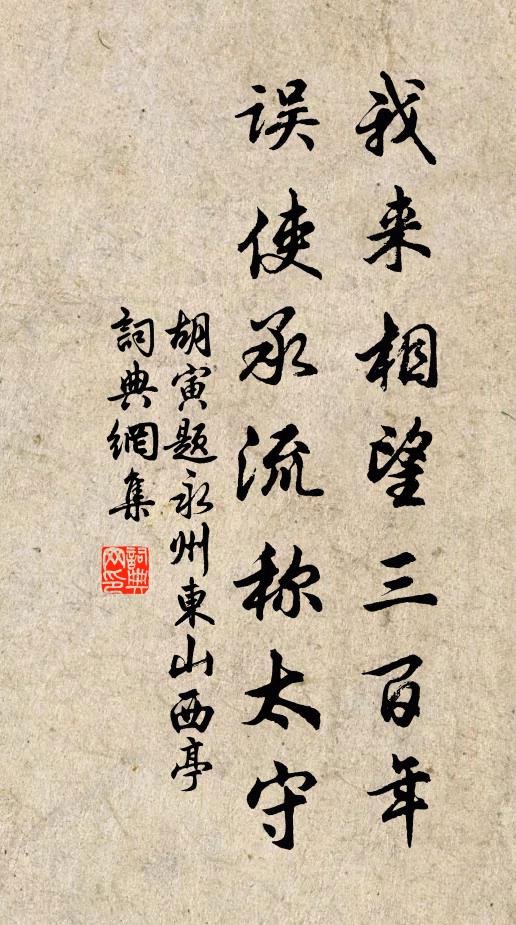 我来相望三百年
误使承流称太守
胡寅题永州東山西亭
詞典網集
詞典网印